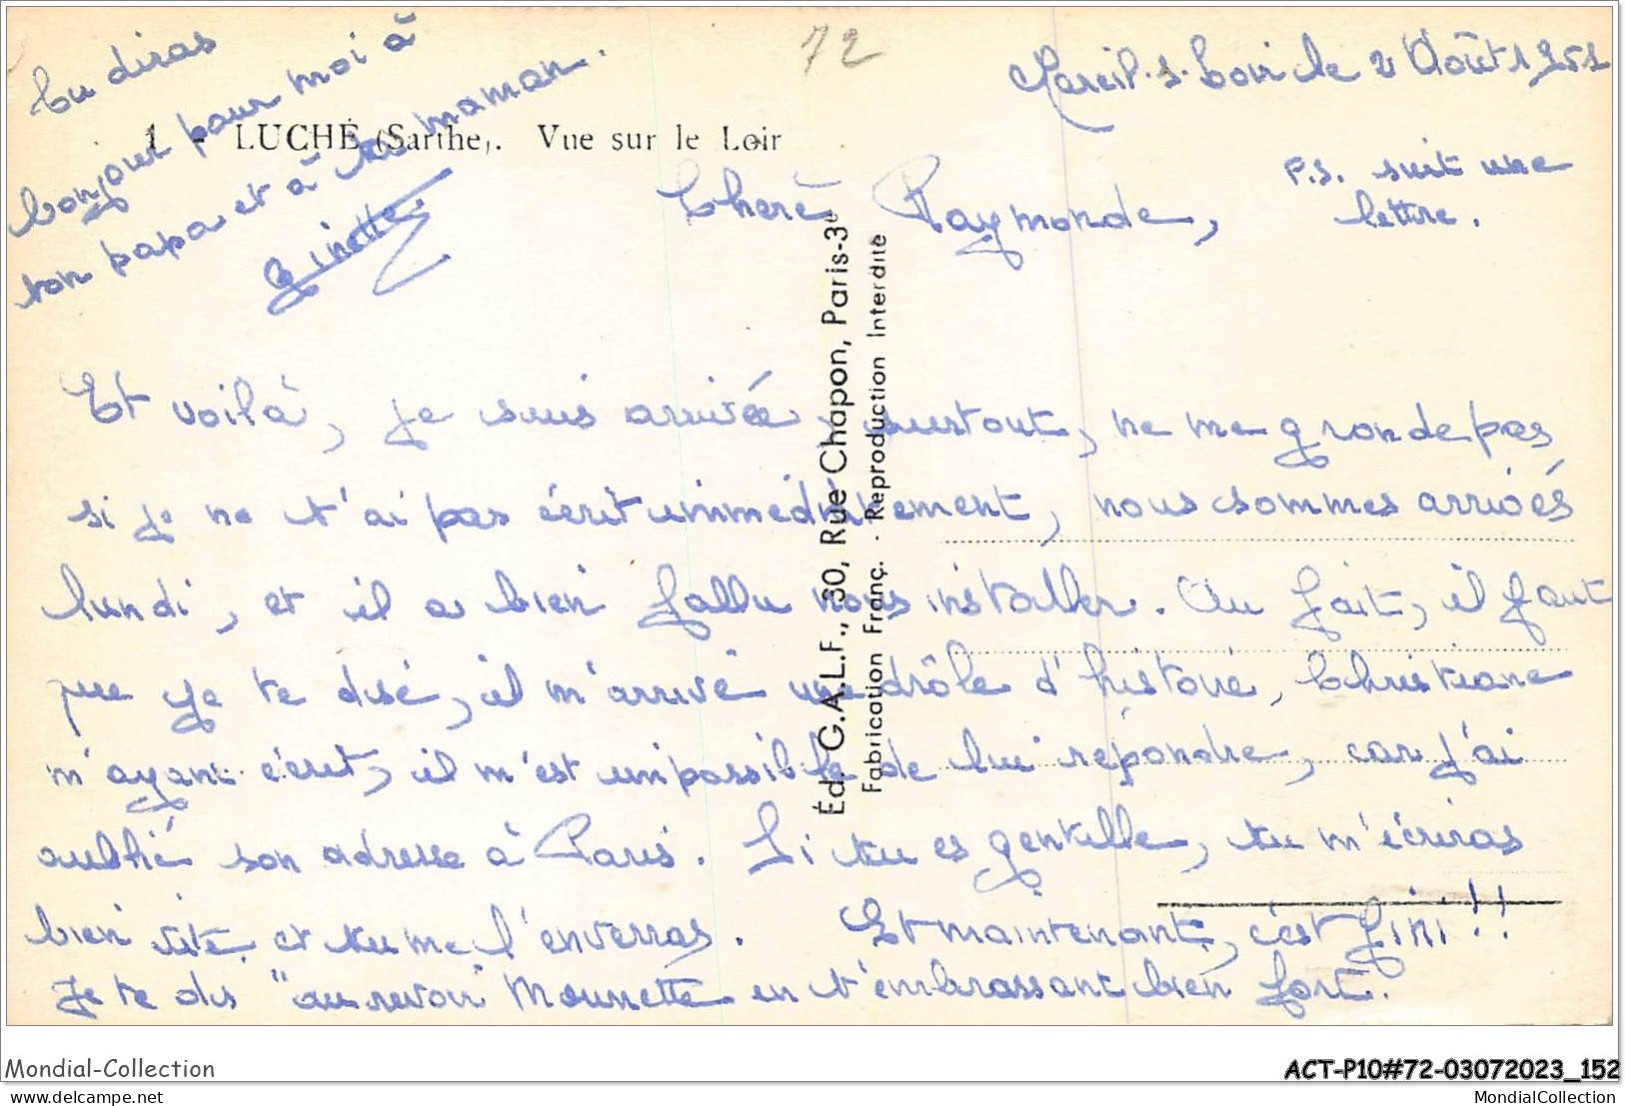 72
Mareil. s. Loir le 2 Août 1951
Tu diras
bonjour pour moi à
ton papa et à ta maman.
Ginette.
1 - LUCHÉ (Sarthe). Vue sur le Loir
P.S. suit une
lettre.
Chère Raymonde,
Et voilà, je suis arrivée, surtout, ne me gronde pas
si je ne t'ai pas écrit immédiatement, nous sommes arrivés
lundi, et il a bien fallu nous installer. Au fait, il faut
que je te dise, il m'arrive une drôle d'histoire, Christiane
m'ayant écrit, il m'est impossible de lui répondre, car j'ai
oublié son adresse à Paris. Si tu es gentille, tu m'écriras
bien vite et tu me l'enverras. Et maintenant, c'est fini!!
Je te dis "au revoir" Mounette en t'embrassant bien fort.
Éd. G.A.L.F., 30, Rue Chapon, Paris-3e
Fabrication Franç. - Reproduction Interdite
Mondial-Collection
ACT-P10#72-03072023_152
delcampe.net
MondialCollection